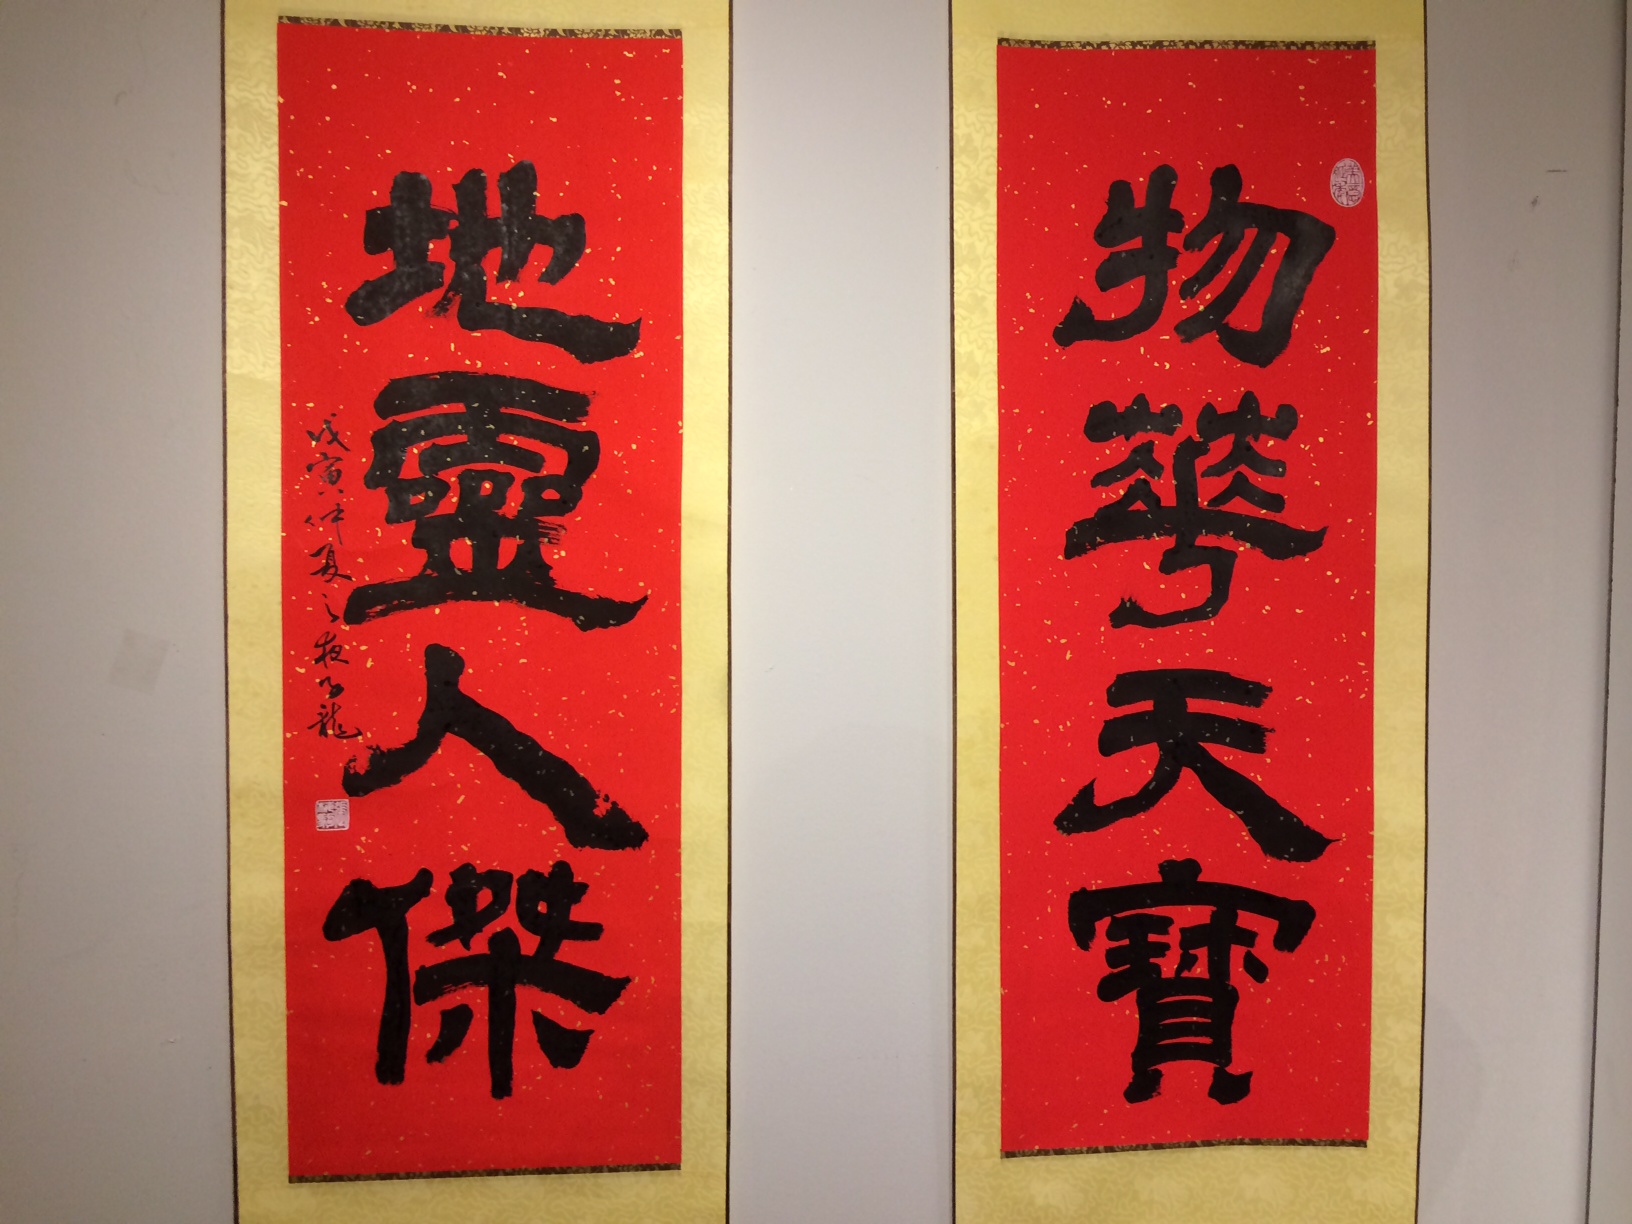 物華天寶
地靈人傑
戊寅仲夏之夜子龍